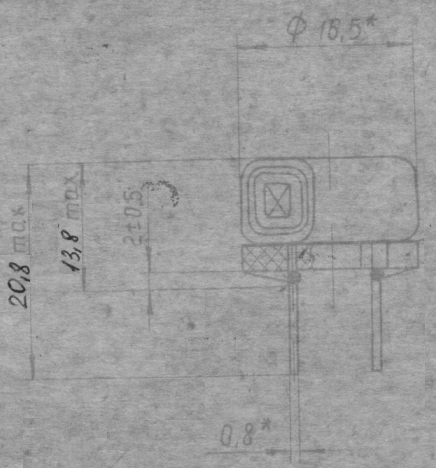 ϕ 18,5*
20,8 max
13,8 max
2±0,5
0,8*